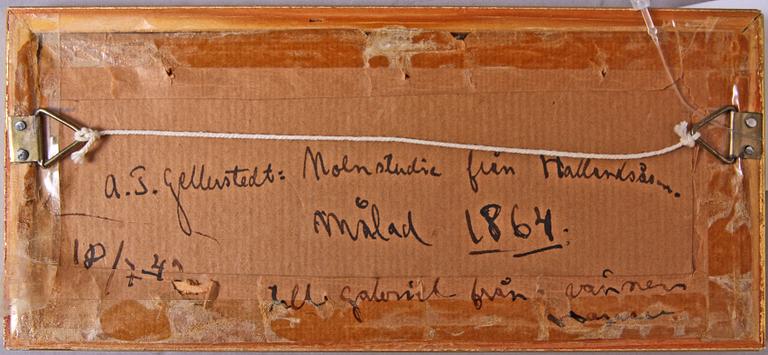 A. T. Gellerstedt: Molnstudie från Hallandsåsen.
Målad 1864.
18/7-42
till Gabriel från vännen